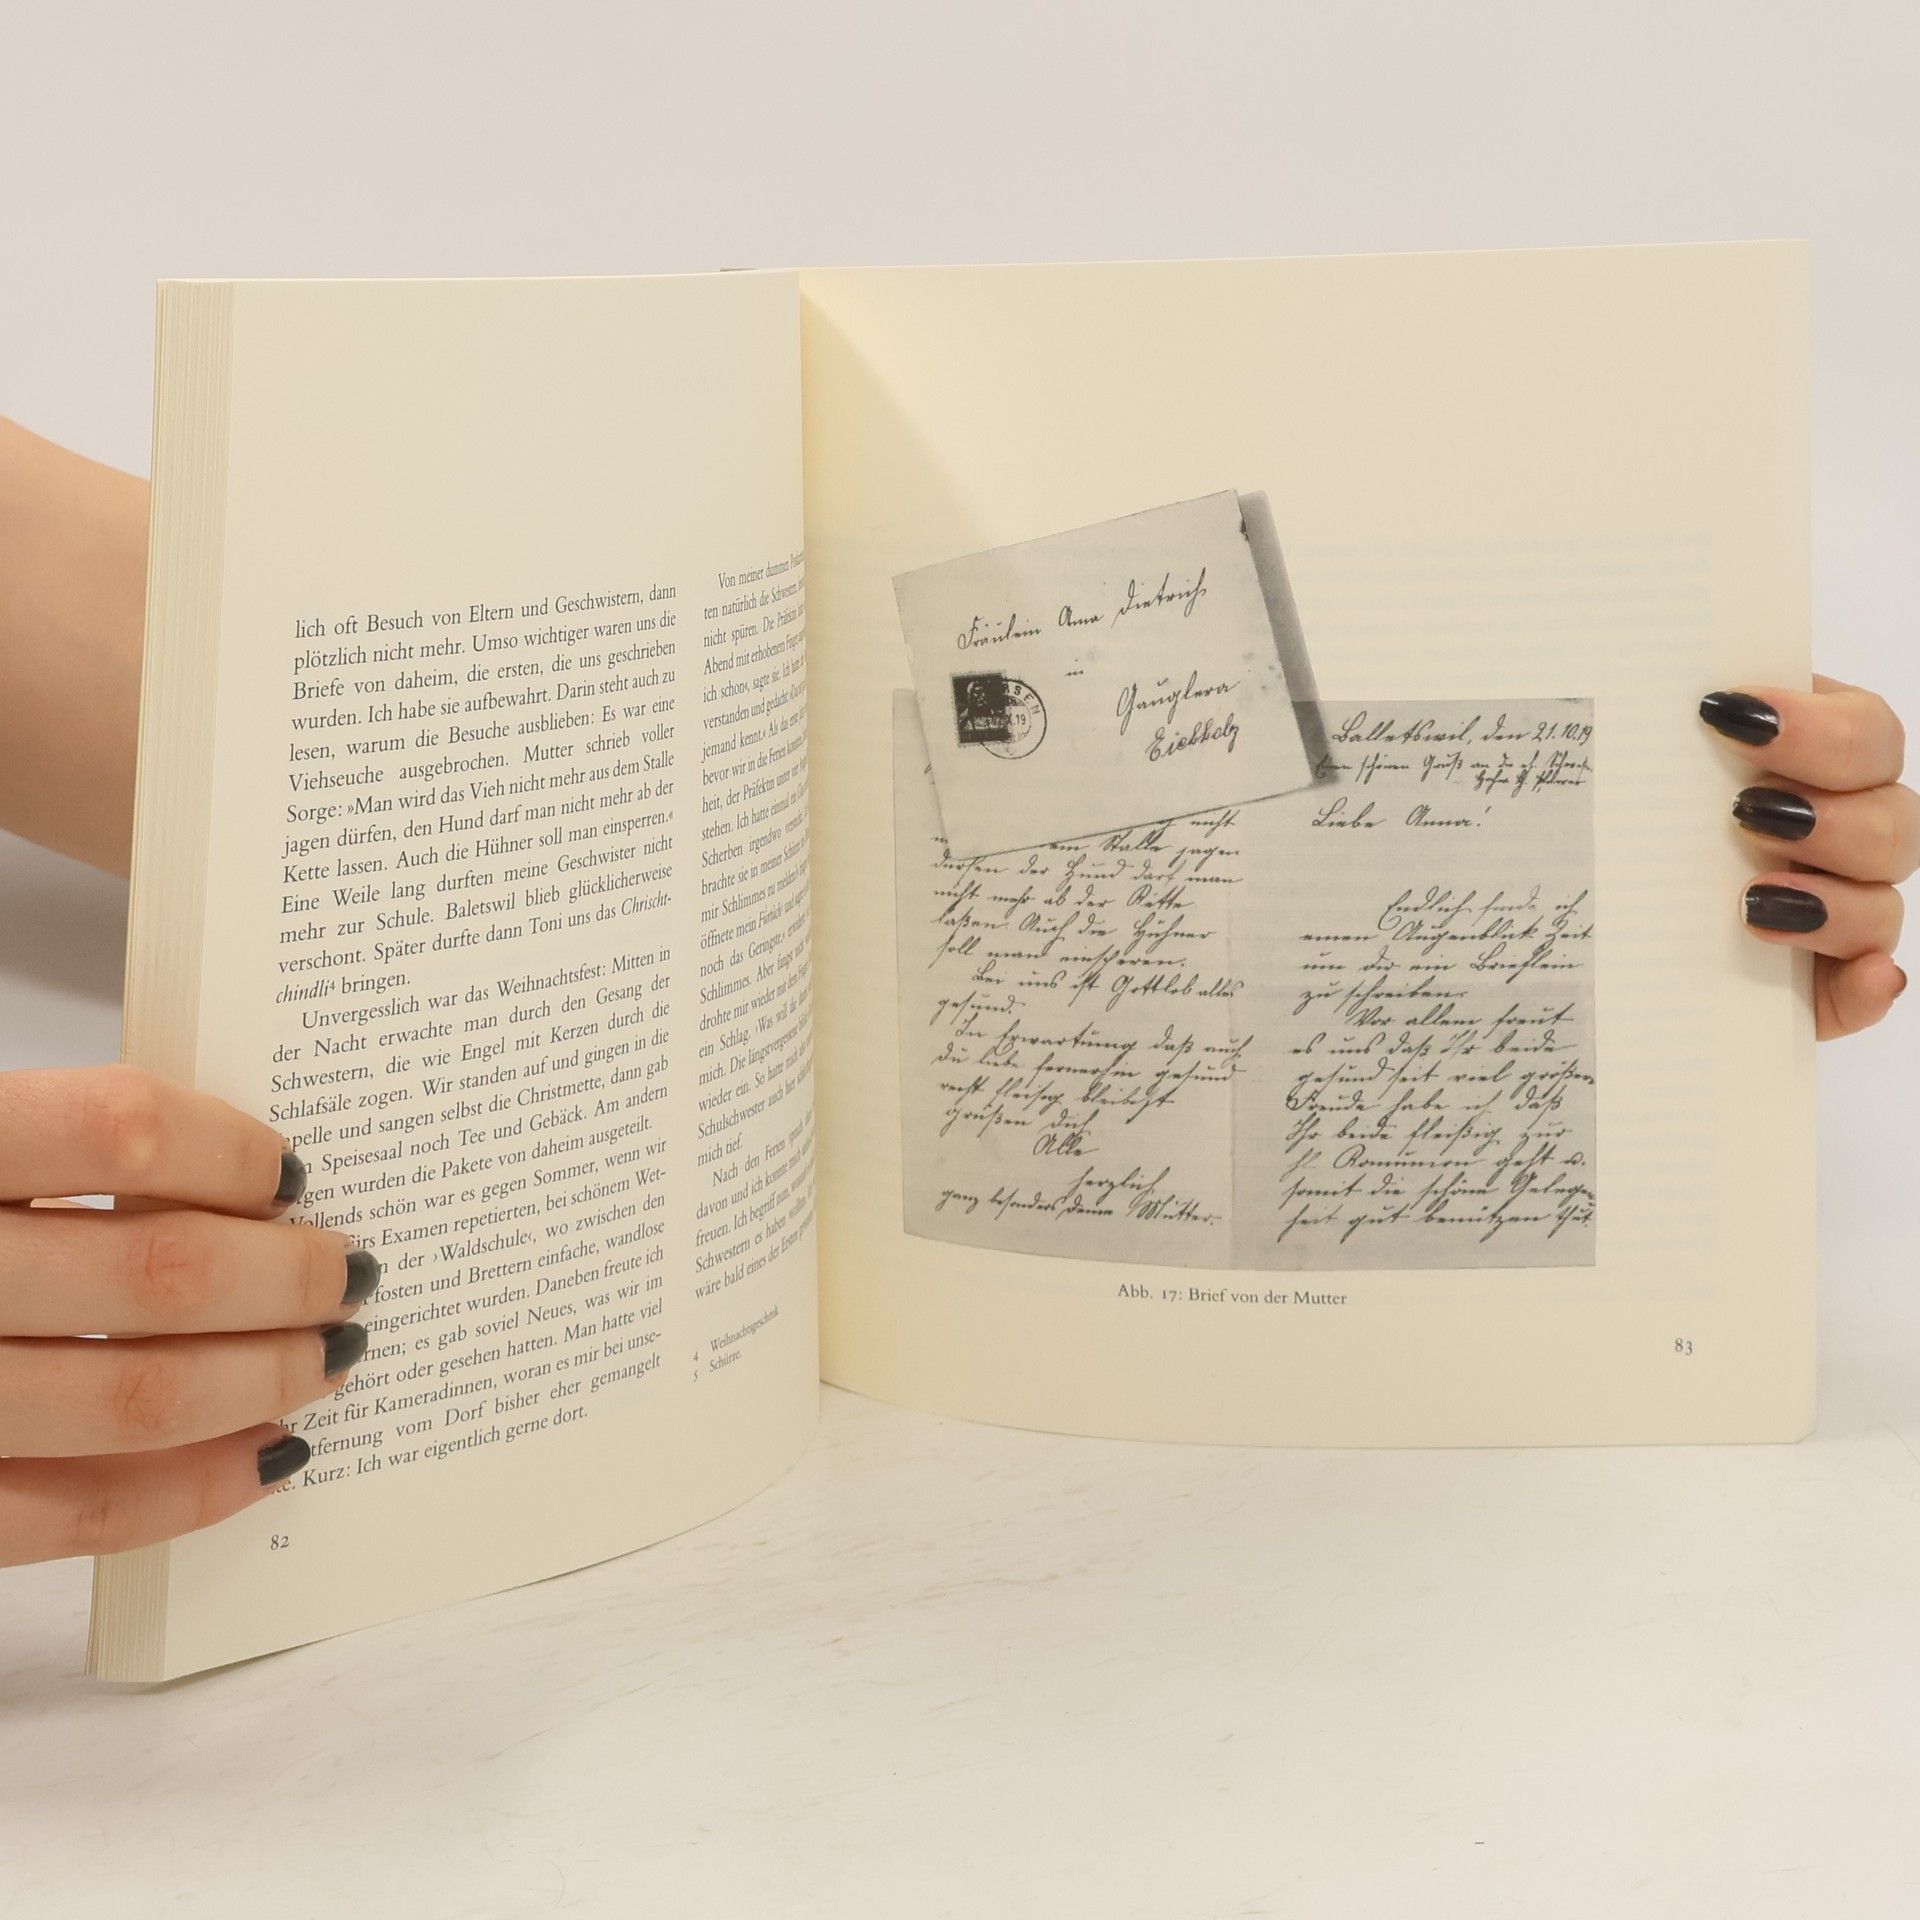 lich oft Besuch von Eltern und Geschwistern, dann
plötzlich nicht mehr. Umso wichtiger waren uns die
Briefe von daheim, die ersten, die uns geschrieben
wurden. Ich habe sie aufbewahrt. Darin steht auch zu
lesen, warum die Besuche ausblieben: Es war eine
Viehseuche ausgebrochen. Mutter schrieb voller
Sorge: »Man wird das Vieh nicht mehr aus dem Stalle
jagen dürfen, den Hund darf man nicht mehr ab der
Kette lassen. Auch die Hühner soll man einsperren.«
Eine Weile lang durften meine Geschwister nicht
mehr zur Schule. Baletswil blieb glücklicherweise
verschont. Später durfte dann Toni uns das Chrischt-
chindli⁴ bringen.
Unvergesslich war das Weihnachtsfest: Mitten in
der Nacht erwachte man durch den Gesang der
Schwestern, die wie Engel mit Kerzen durch die
Schlafsäle zogen. Wir standen auf und gingen in die
pelle und sangen selbst die Christmette, dann gab
Speisesaal noch Tee und Gebäck. Am andern
gen wurden die Pakete von daheim ausgeteilt.
Vollends schön war es gegen Sommer, wenn wir
fürs Examen repetierten, bei schönem Wet-
n der ›Waldschule‹, wo zwischen den
fosten und Brettern einfache, wandlose
eingerichtet wurden. Daneben freute ich
rnen; es gab soviel Neues, was wir im
gehört oder gesehen hatten. Man hatte viel
hr Zeit für Kameradinnen, woran es mir bei unse-
tfernung vom Dorf bisher eher gemangelt
te. Kurz: Ich war eigentlich gerne dort.
82
Von meiner dummen
ten natürlich die Schwestern
nicht spüren. Die Präfektin
Abend mit erhobenem Finger
ich schon‹, sagte sie. Ich
verstanden und gedacht:
jemand kennt.‹ Als das erste
bevor wir in die Ferien
heit, der Präfektin unter vier
stehen. Ich hatte einmal ein
Scherben irgendwo
brachte sie in meiner Schürze
mir Schlimmes zu melden?‹
öffnete mein Fürtüch⁵ und
noch das Geringste.‹
Schlimmes. Aber
drohte mir wieder mit dem
ein Schlag. ›Was will die
mich. Die längstvergessene
wieder ein. So hatte mich
Schulschwester auch hier
mich tief.
Nach den Ferien sprach
davon und ich konnte mich
freuen. Ich begriff nun,
Schwestern es haben wollten.
wäre bald eines der Ersten
4 Weihnachtsgeschenk.
5 Schürze.
Fräulein Anna Dietrich
in
Gauglera
Eichholz
nicht
em Stalle jagen
dürfen der Hund darf man
nicht mehr ab der Kette
laßen. Auch die Hühner
soll man einsperen.
Bei uns ist Gottlob alles
gesund.
In Erwartung daß auch
Du liebe fernerhin gesund
recht fleisig bleibest
grüßen Dich
Alle
herzlich
ganz besonders Deine Mutter.
Balletswil, den 21.10.19
schönen Gruß an die
Liebe Anna!
Endlich finde ich
einen Augenblick Zeit
um dir ein Brieflein
zu schreiben.
Vor allem freut
es uns daß Ihr beide
gesund seit viel größere
Freude habe ich daß
Ihr beide fleißig zur
hl. Komunion geht u.
somit die schöne Gelegen
heit gut benützen thut.
Abb. 17: Brief von der Mutter
83